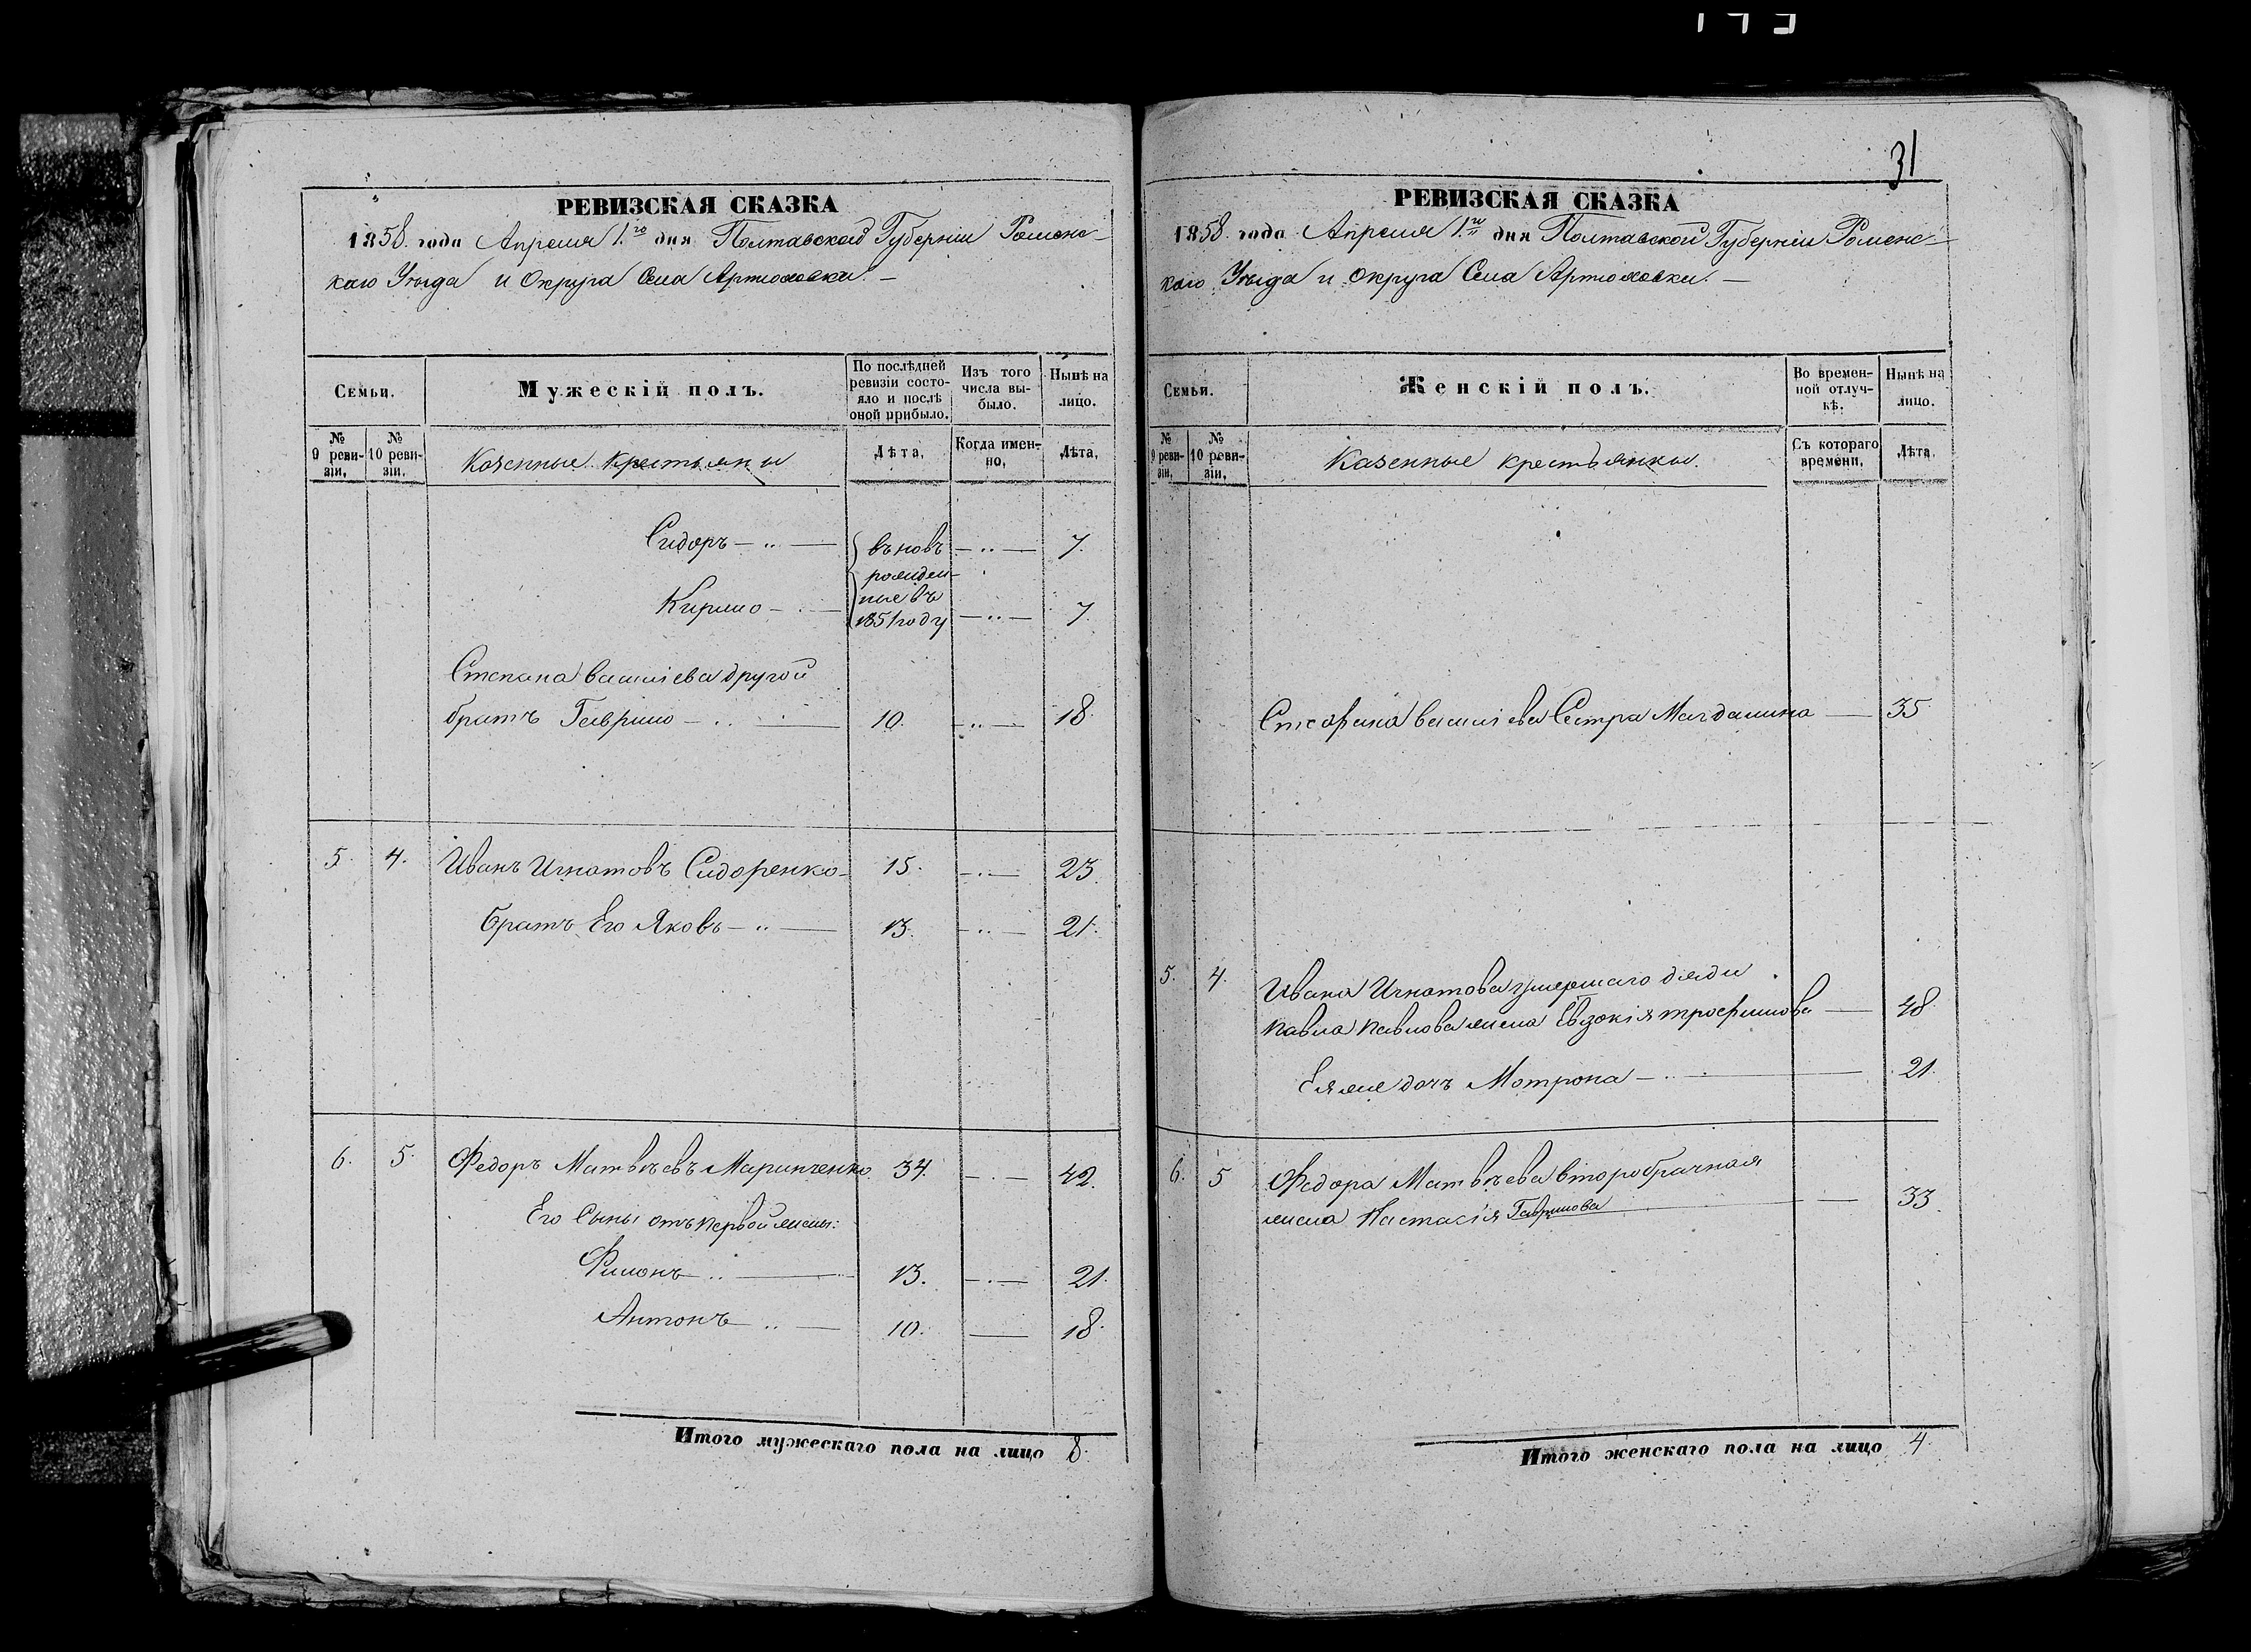 31
РЕВИЗСКАЯ СКАЗКА
1858. года Апреля 1.го дня Полтавской Губернiи Роменс-
каго Уѣзда и Округа Села Артюховки. —
Семьи.
Мужескiй полъ.
По послѣдней ревизiи состо-
яло и послѣ оной прибыло.
Изъ того числа вы-
было.
Нынѣ на лицо.
№ 9 реви-
зiи,
№ 10 реви-
зiи.
Казенные крестьяны
Лѣта,
Когда имен-
но,
Лѣта,
Сидоръ — „ — 7.
Кирило — „ — 7.
въновь
рожден-
ные въ
1851 году
Степана василiева другой
братъ Гаврило — „ — 10. — „ — 18.
5. 4. Иванъ Игнатовъ Сидоренко — 15. — „ — 23.
братъ Его Яковъ — „ — 13. — „ — 21.
6. 5. Федоръ Матвѣевъ Маринченко. 34. — „ — 42.
Его Сыны отъ первой жены:
Филонъ — „ — 13. — „ — 21.
Антонъ — „ — 10. — 18.
Итого мужескаго пола на лицо 8.
РЕВИЗСКАЯ СКАЗКА
1858. года Апреля 1.го дня Полтавской Губернiи Роменс-
каго Уѣзда и Округа Села Артюховки. —
Семьи.
Женскiй полъ.
Во времен-
ной отлуч-
кѣ.
Нынѣ на лицо.
№ 9 реви-
зiи,
№ 10 реви-
зiи,
Казенные крестьянки.
Съ котораго времени,
Лѣта,
василiева Сестра Магдалина — 35
5. 4. Ивана Игнатова умершаго дяди
Павла Павлова жена Евдокiя трофимова — 48.
Еяже дочь Мотрона — 21.
6. 5 Федора Матвѣева второбрачная
жена Настасiя Гаврилова — 33.
Итого женскаго пола на лицо 4.